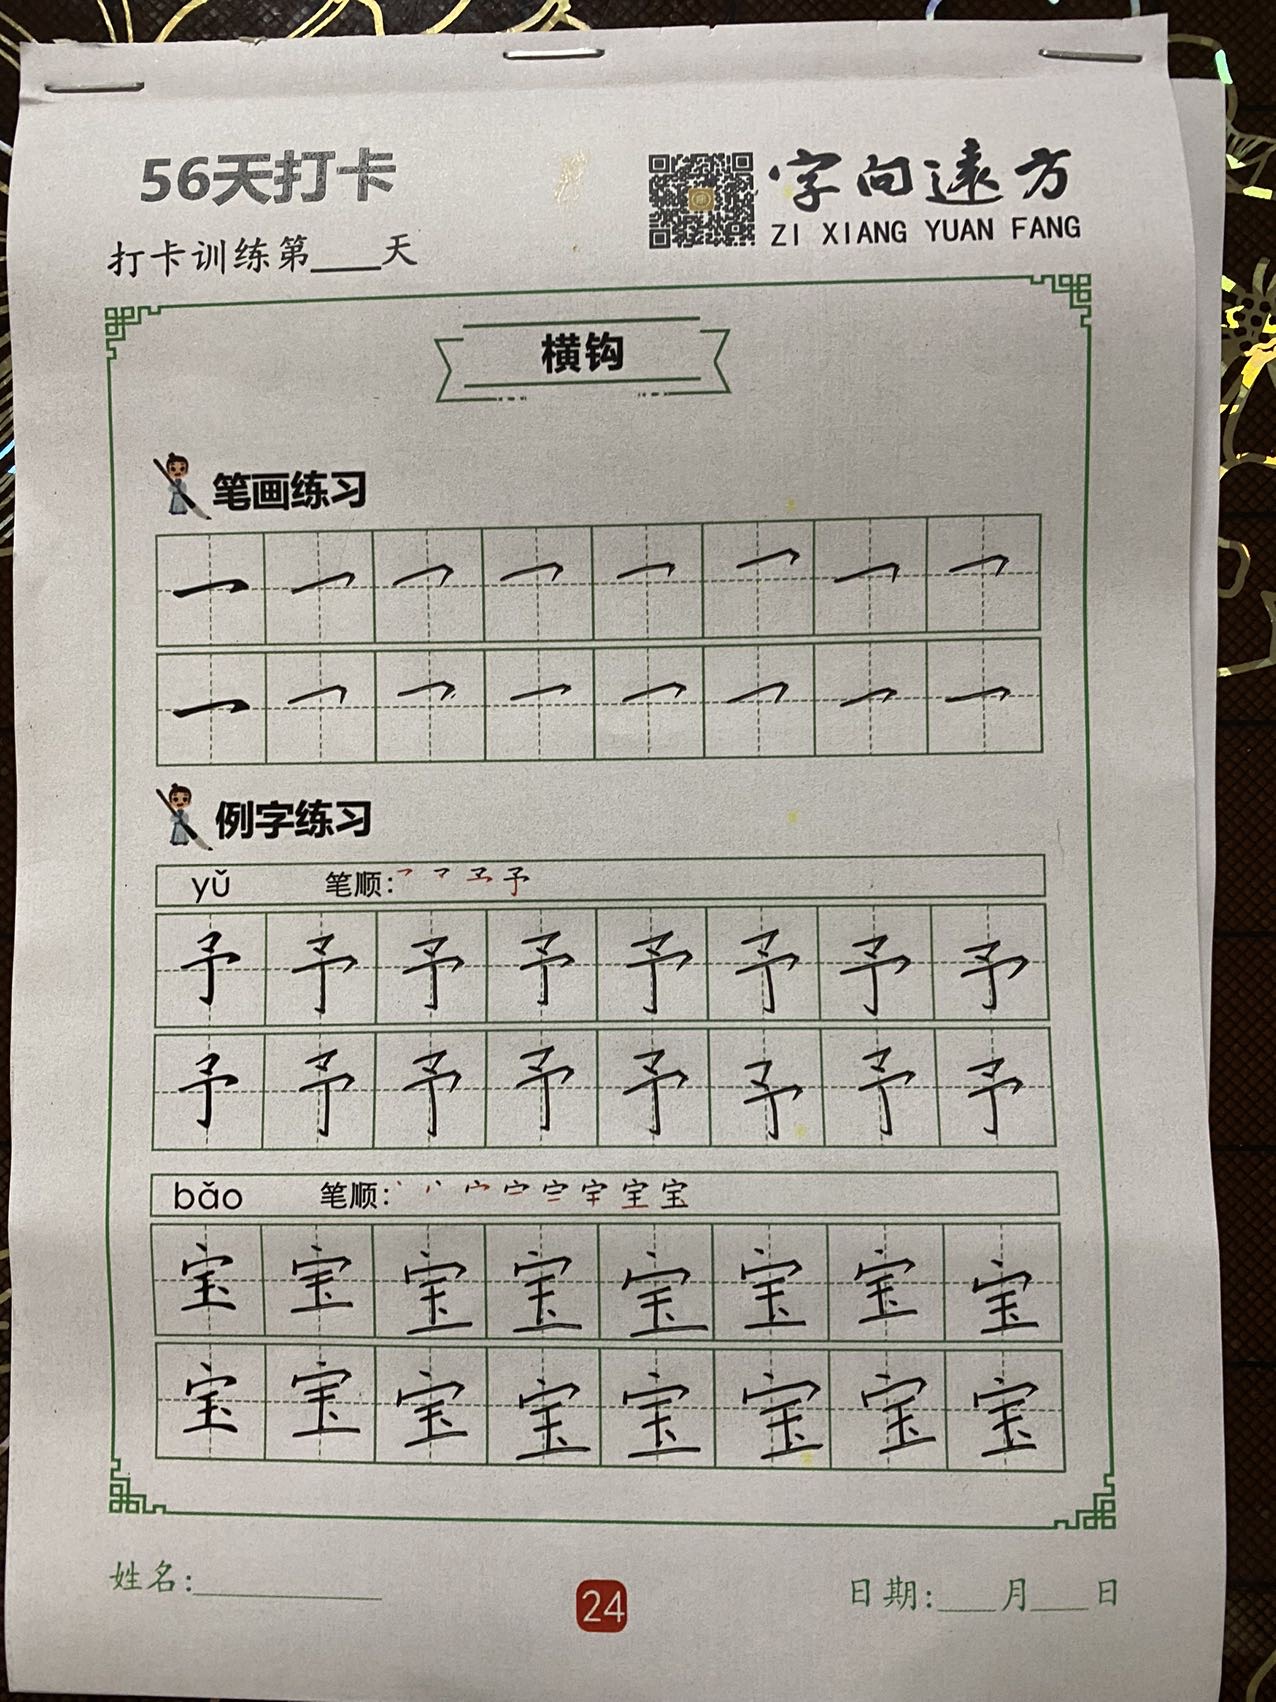 56天打卡
字向远方
ZI XIANG YUAN FANG
打卡训练第____天
横钩
笔画练习
㇖ ㇖ ㇖ ㇖ ㇖ ㇖ ㇖ ㇖
㇖ ㇖ ㇖ ㇖ ㇖ ㇖ ㇖ ㇖
例字练习
yǔ 笔顺: 予
予 予 予 予 予 予 予 予
予 予 予 予 予 予 予 予
bǎo 笔顺: 宝
宝 宝 宝 宝 宝 宝 宝 宝
宝 宝 宝 宝 宝 宝 宝 宝
姓名:__________ 24 日期:___月___日